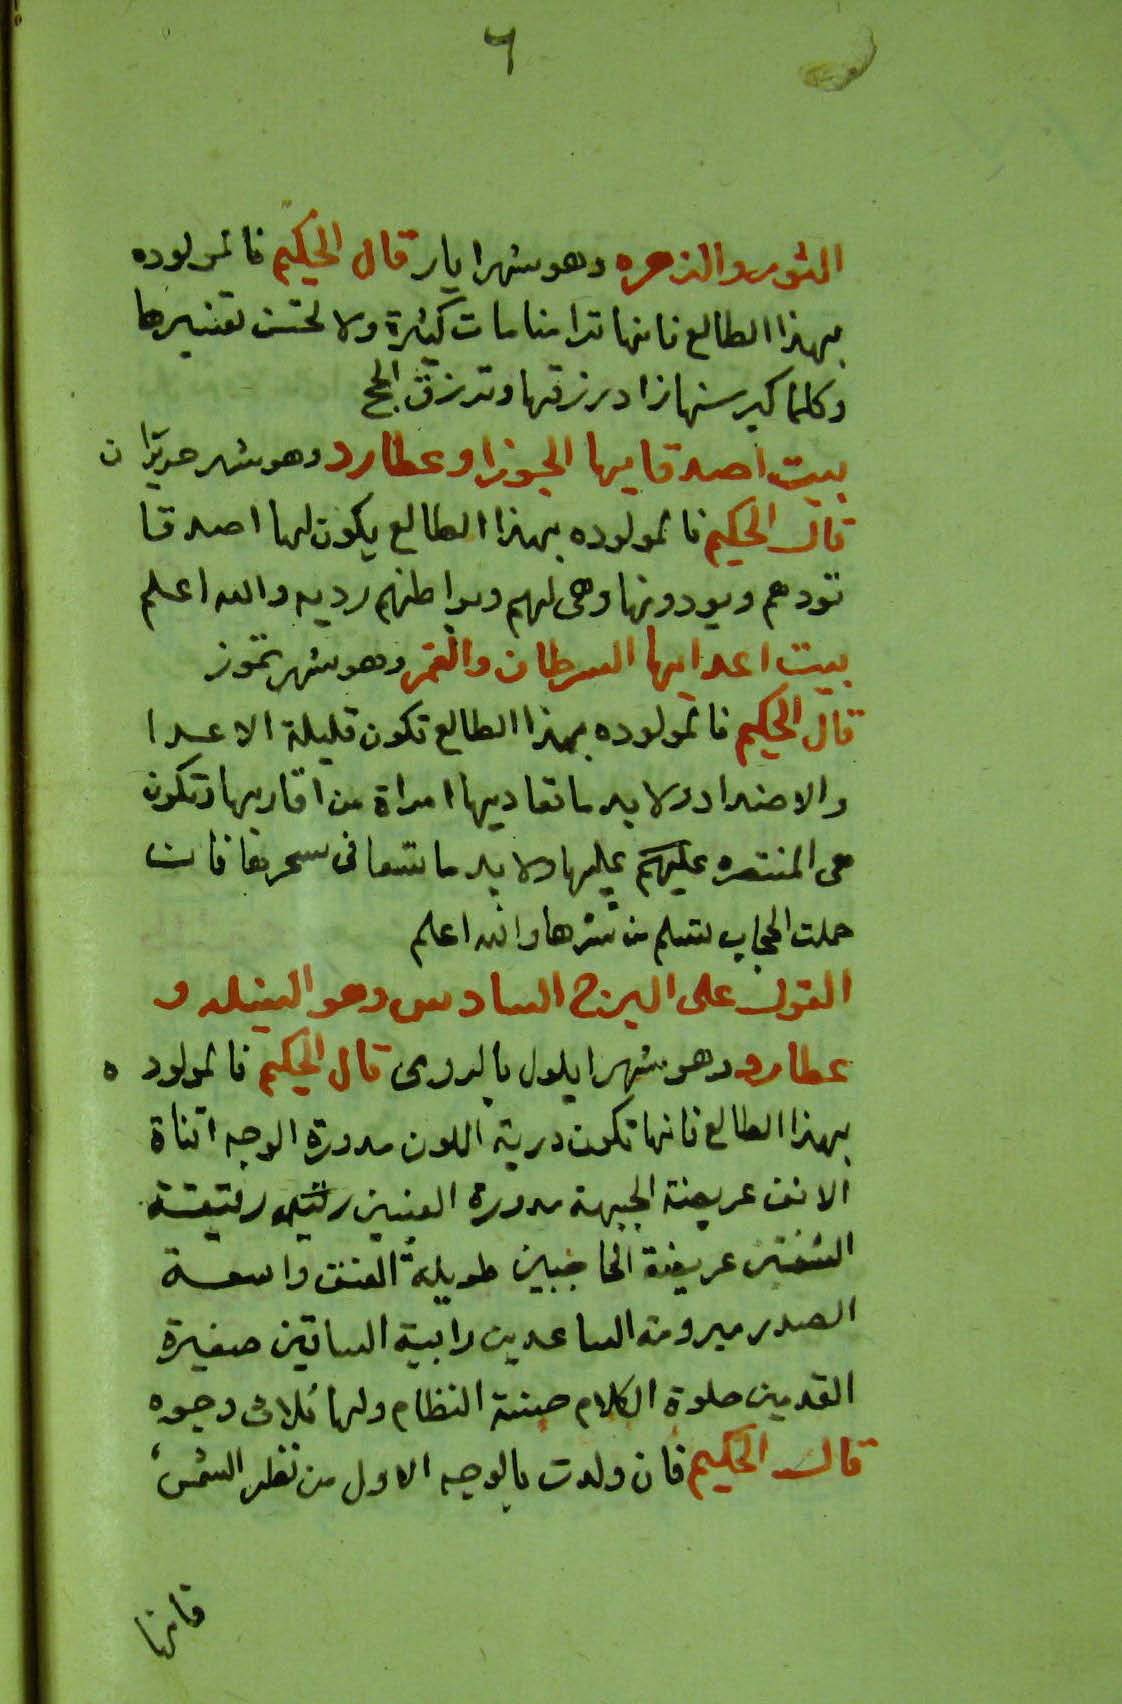 ٦
الثور والزهره وهو شهر ايار قال الحكيم فالمولوده
بهذا الطالع فانها ترا منامات كثيرة ولا تحسن تفسيرها
وكلما كبر سنها زاد رزقها وترزق الحج
بيت اصدقايها الجوزا وعطارد وهو شهر حزيران
قال الحكيم فالمولوده بهذا الطالع يكون لها اصدقا
تودهم ويودونها وهى لهم وبواطنهم رديه والله اعلم
بيت اعدايها السرطان والقمر وهو شهر تموز
قال الحكيم فالمولوده بهذا الطالع تكون قليلة الاعدا
والاضداد ولا بد ما تعاديها امراة من اقاربها وتكون
هى المنتصره عليهم عليها ولا بد ما تسعا فى سحرها فان
حملت الحجاب تسلم من شرها والله اعلم
القول على البرج السادس وهو السنبله و
عطارد وهو شهر ايلول بالرومى قال الحكيم فالمولوده
بهذا الطالع فانها تكون درية اللون مدورة الوجه اقناة
الانف عريضة الجبهة مدورة العينين رقيقة
الشفتين عريضة الحاجبين طويلة العنق واسعة
الصدر مبرومة الساعدين رابية الساقين صغيرة
القدمين حلوة الكلام حسنة النظام ولها ثلاث وجوه
قال الحكيم فان ولدت بالوجه الاول من نظر الشمس
فانها